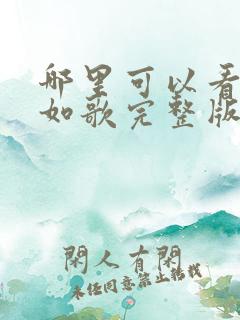 哪里可以看
如歌完整版
閑人有閑
未经同意禁止转载